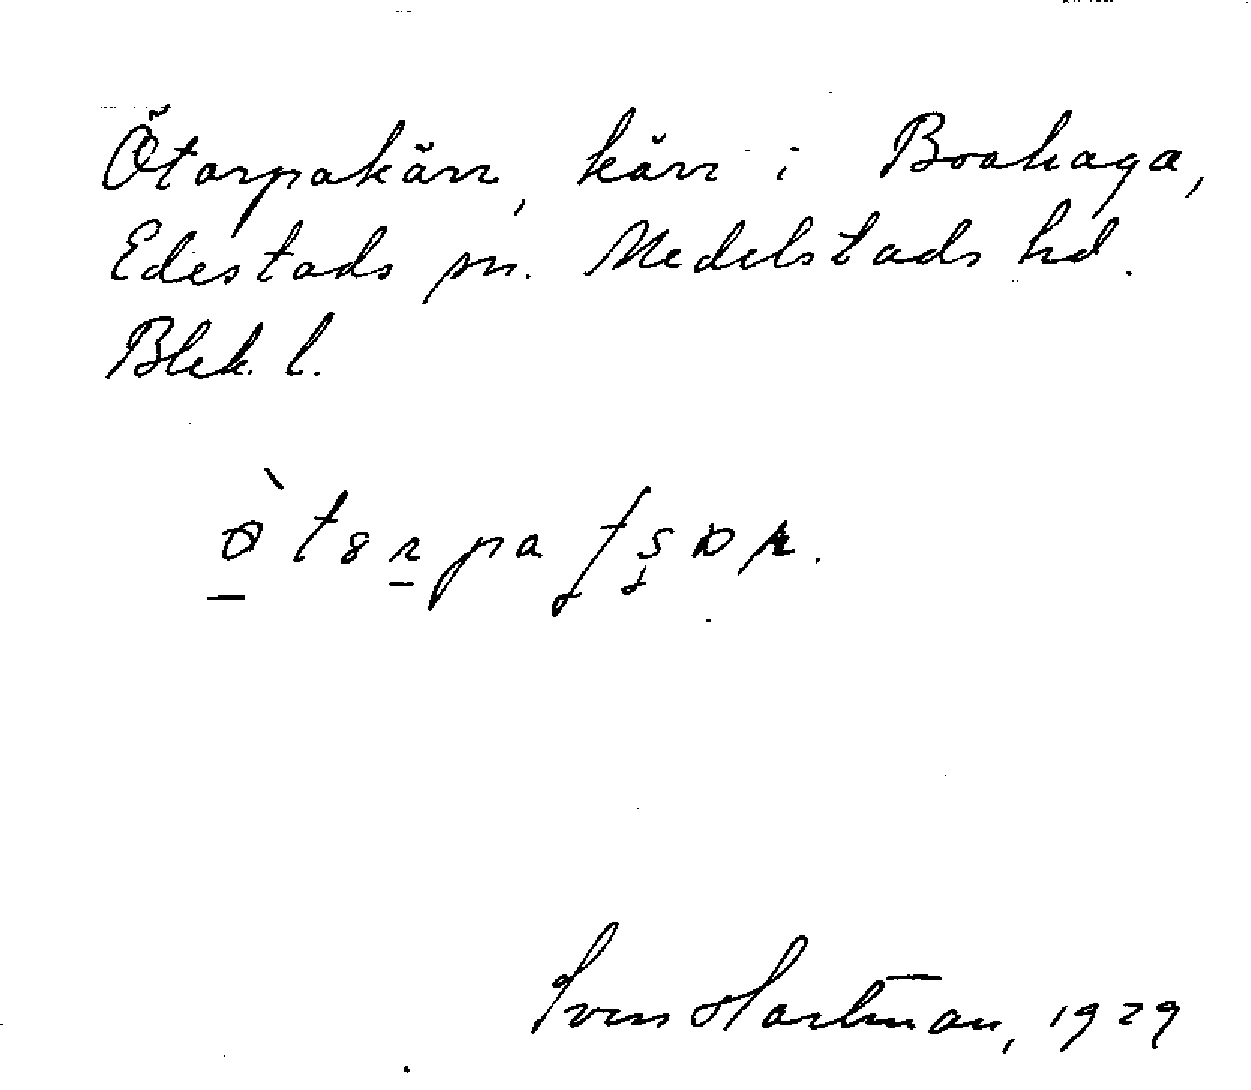 Ötarpakärr, kärr i Boahaga,
Edestads sn. Medelstads hd.
Blek. l.
Sven Hartman, 1929